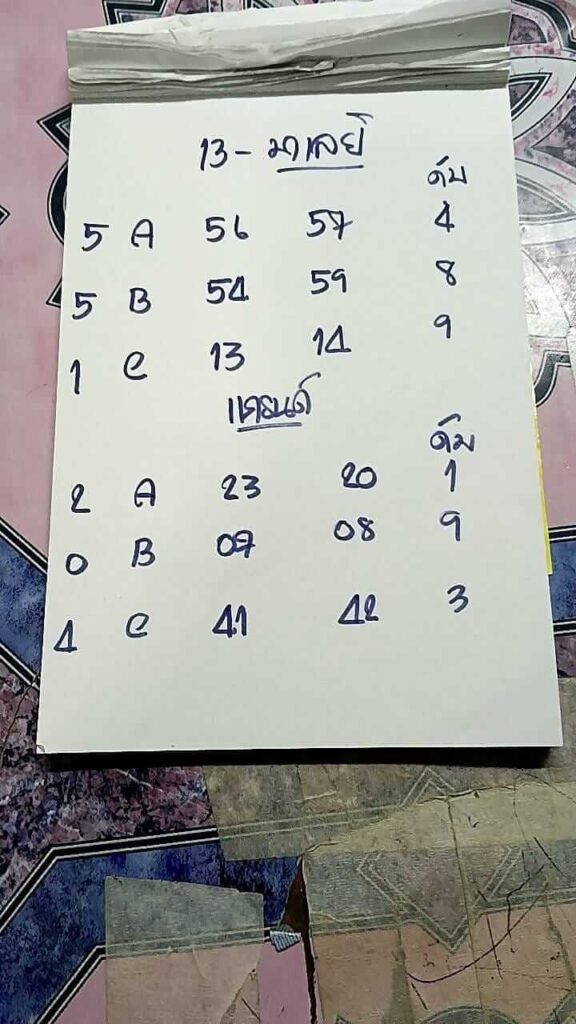 13 - มาเลย์
ดับ
5 A 56 57 4
5 B 54 59 8
1 C 13 14 9
แกรนด์
ดับ
2 A 23 20 1
0 B 07 08 9
4 C 41 42 3